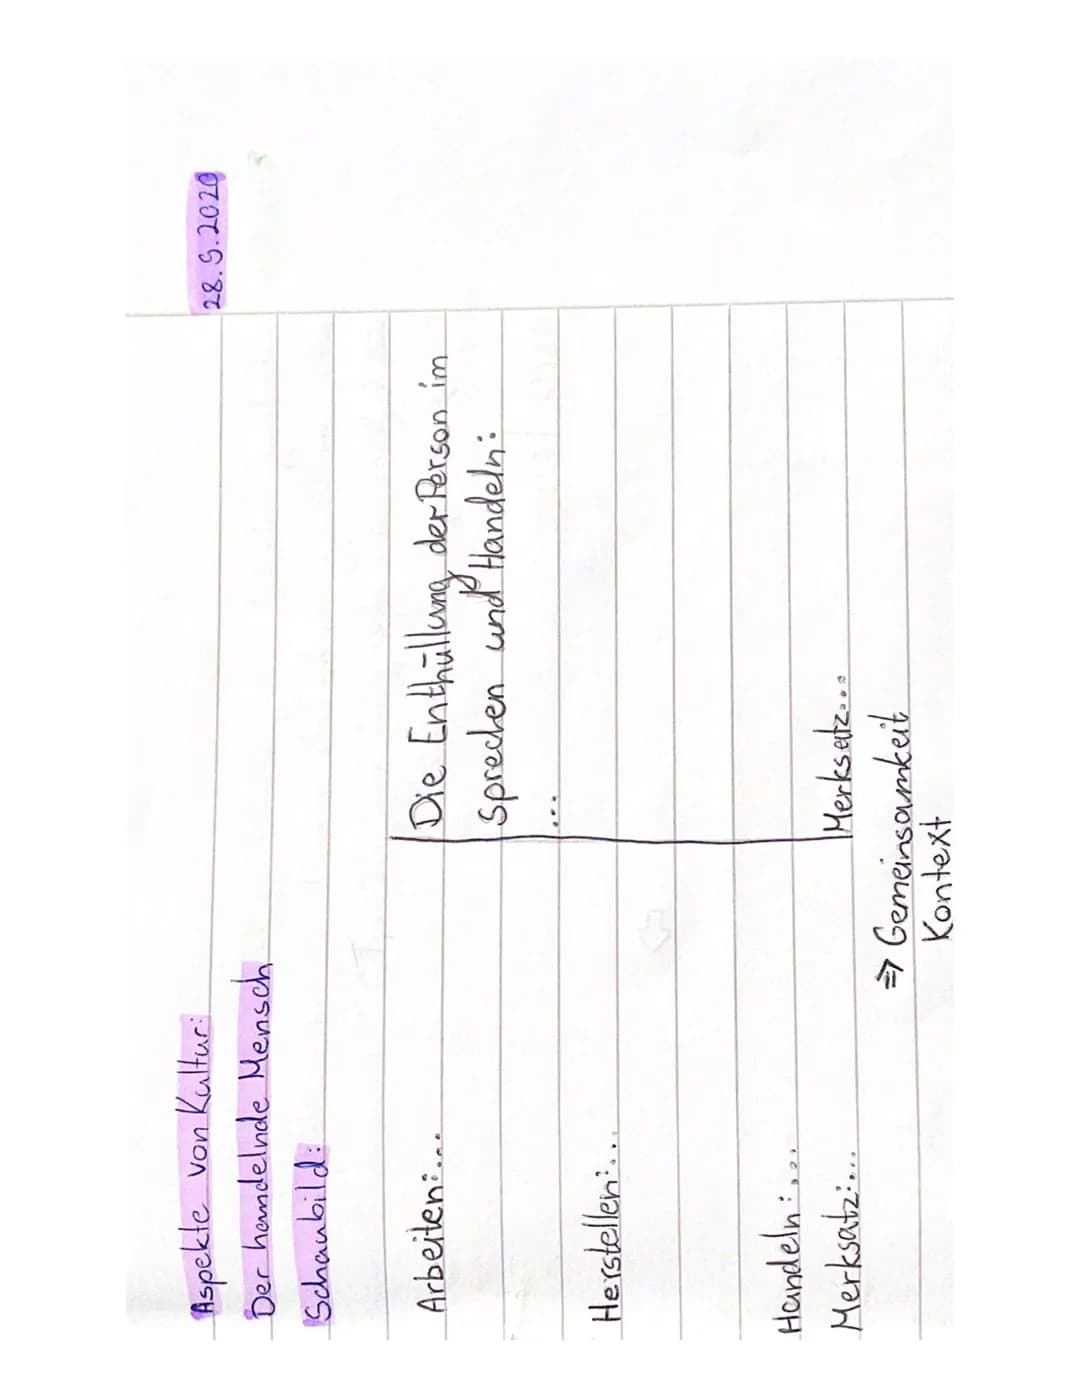 28.9.2020
Aspekte von Kultur:
Der handelnde Mensch
Schaubild:
Arbeiten:...
Herstellen:...
Handeln:...
Merksatz:...
Die Enthüllung der Person im
Sprechen und Handeln:
...
Merksatz...
=> Gemeinsamkeit
Kontext